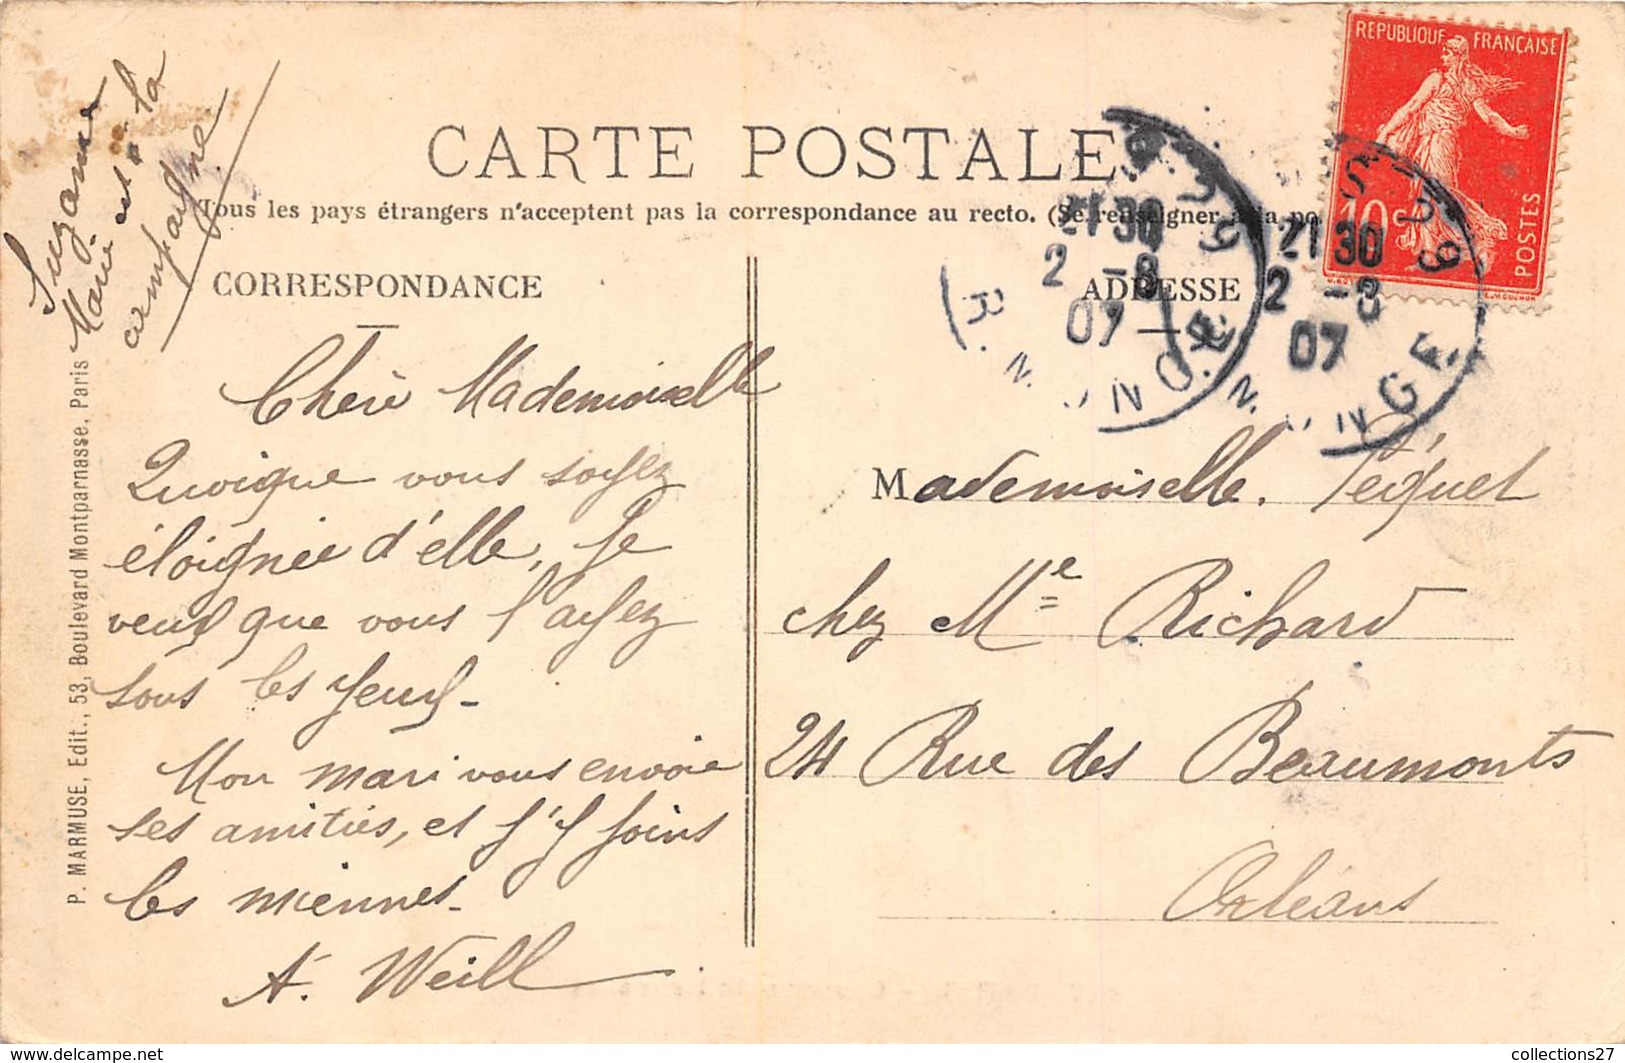 REPUBLIQUE FRANÇAISE
10c
POSTES
CARTE POSTALE
Tous les pays étrangers n'acceptent pas la correspondance au recto. (Se renseigner à la po
CORRESPONDANCE
ADRESSE
21 30
2 -8
07
21 30
2 -8
07
Suzanne
Marie est à la
campagne
Chère Mademoiselle
Quoique vous soyez
éloignée d'elle, je
veux que vous l'ayez
sous les yeux-
Mon mari vous envoie
ses amitiés, et j'y joins
les miennes-
A. Weill
Mademoiselle. Péquet
chez Me Richard
24 Rue des Beaumonts
Orléans
P. MARMUSE, Edit., 53, Boulevard Montparnasse, Paris
www.delcampe.net
collections27